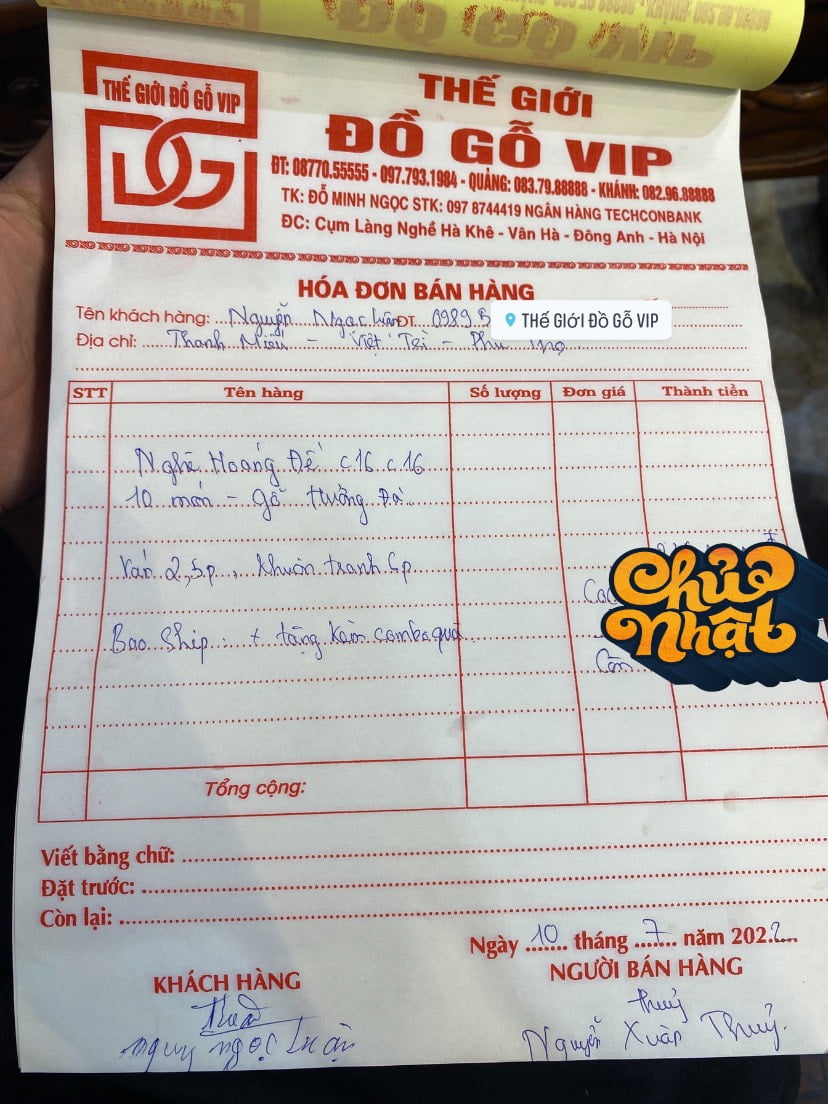 THẾ GIỚI ĐỒ GỖ VIP
DG
THẾ GIỚI
ĐỒ GỖ VIP
ĐT: 08770.55555 - 097.793.1984 - QUẢNG: 083.79.88888 - KHÁNH: 082.96.88888
TK: ĐỖ MINH NGỌC STK: 097 8744419 NGÂN HÀNG TECHCONBANK
ĐC: Cụm Làng Nghề Hà Khê - Vân Hà - Đông Anh - Hà Nội
HÓA ĐƠN BÁN HÀNG
Tên khách hàng: Nguyễn Ngọc Luân ĐT. 0989.5
THế GIớI Đồ Gỗ VIP
Địa chỉ: Thanh Miếu - Việt Trì - Phú Thọ
STT Tên hàng Số lượng Đơn giá Thành tiền
Nghê Hoàng Đế c16 c16
10 món - gỗ Hương Đá
Ván 2,5p, khuôn tranh 6p
Bao ship + tặng kèm combo quà
Còn
Chủ Nhật
Tổng cộng:
Viết bằng chữ:
Đặt trước:
Còn lại:
Ngày 10 tháng 7 năm 2022
KHÁCH HÀNG
NGƯỜI BÁN HÀNG
Thuỷ
Nguyễn Xuân Thuỷ
ngọc Luận